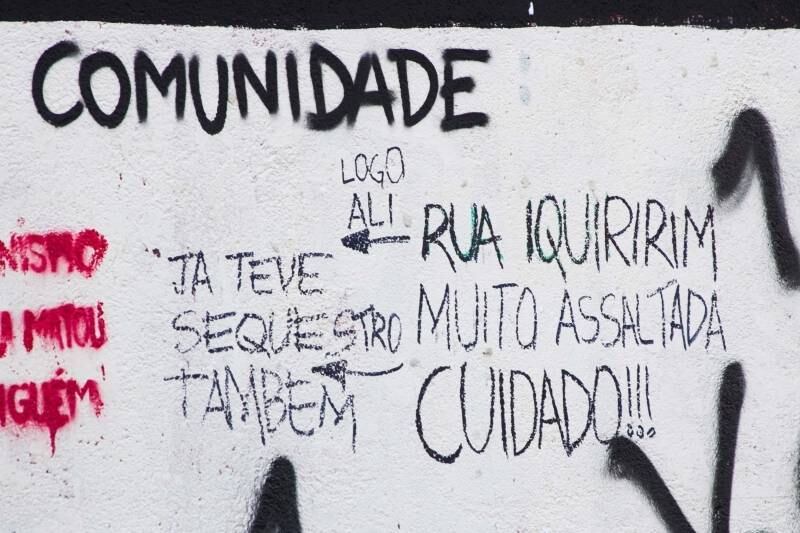 COMUNIDADE
LOGO
ALI
RUA IQUIRIRIM
MUITO ASSALTADA
CUIDADO!!!
JA TEVE
SEQUESTRO
TAMBÉM
MATOU